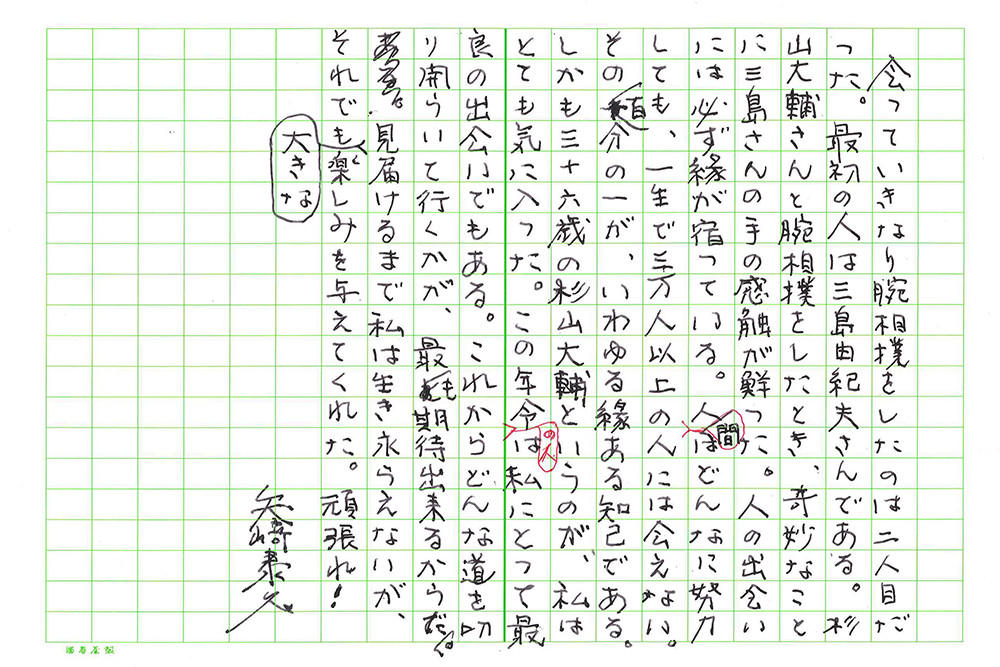 会っていきなり腕相撲をしたのは二人目だ
った。最初の人は三島由紀夫さんである。杉
山大輔さんと腕相撲をしたとき、奇妙なこと
に三島さんの手の感触が鮮った。人の出会い
には必ず縁が宿っている。人間はどんなに努力
しても、一生で三万人以上の人には会えない。
その百分の一が、いわゆる縁ある知己である。
しかも三十六歳の杉山大輔というのが、私は
とても気に入った。この年令の人は私にとって最
良の出会いでもある。これからどんな道を切
り開らいて行くかが、最も期待出来るからだ。
見届けるまで私は生き永らえないが、
それでも大きな楽しみを与えてくれた。頑張れ!
矢崎泰久
満寿屋製